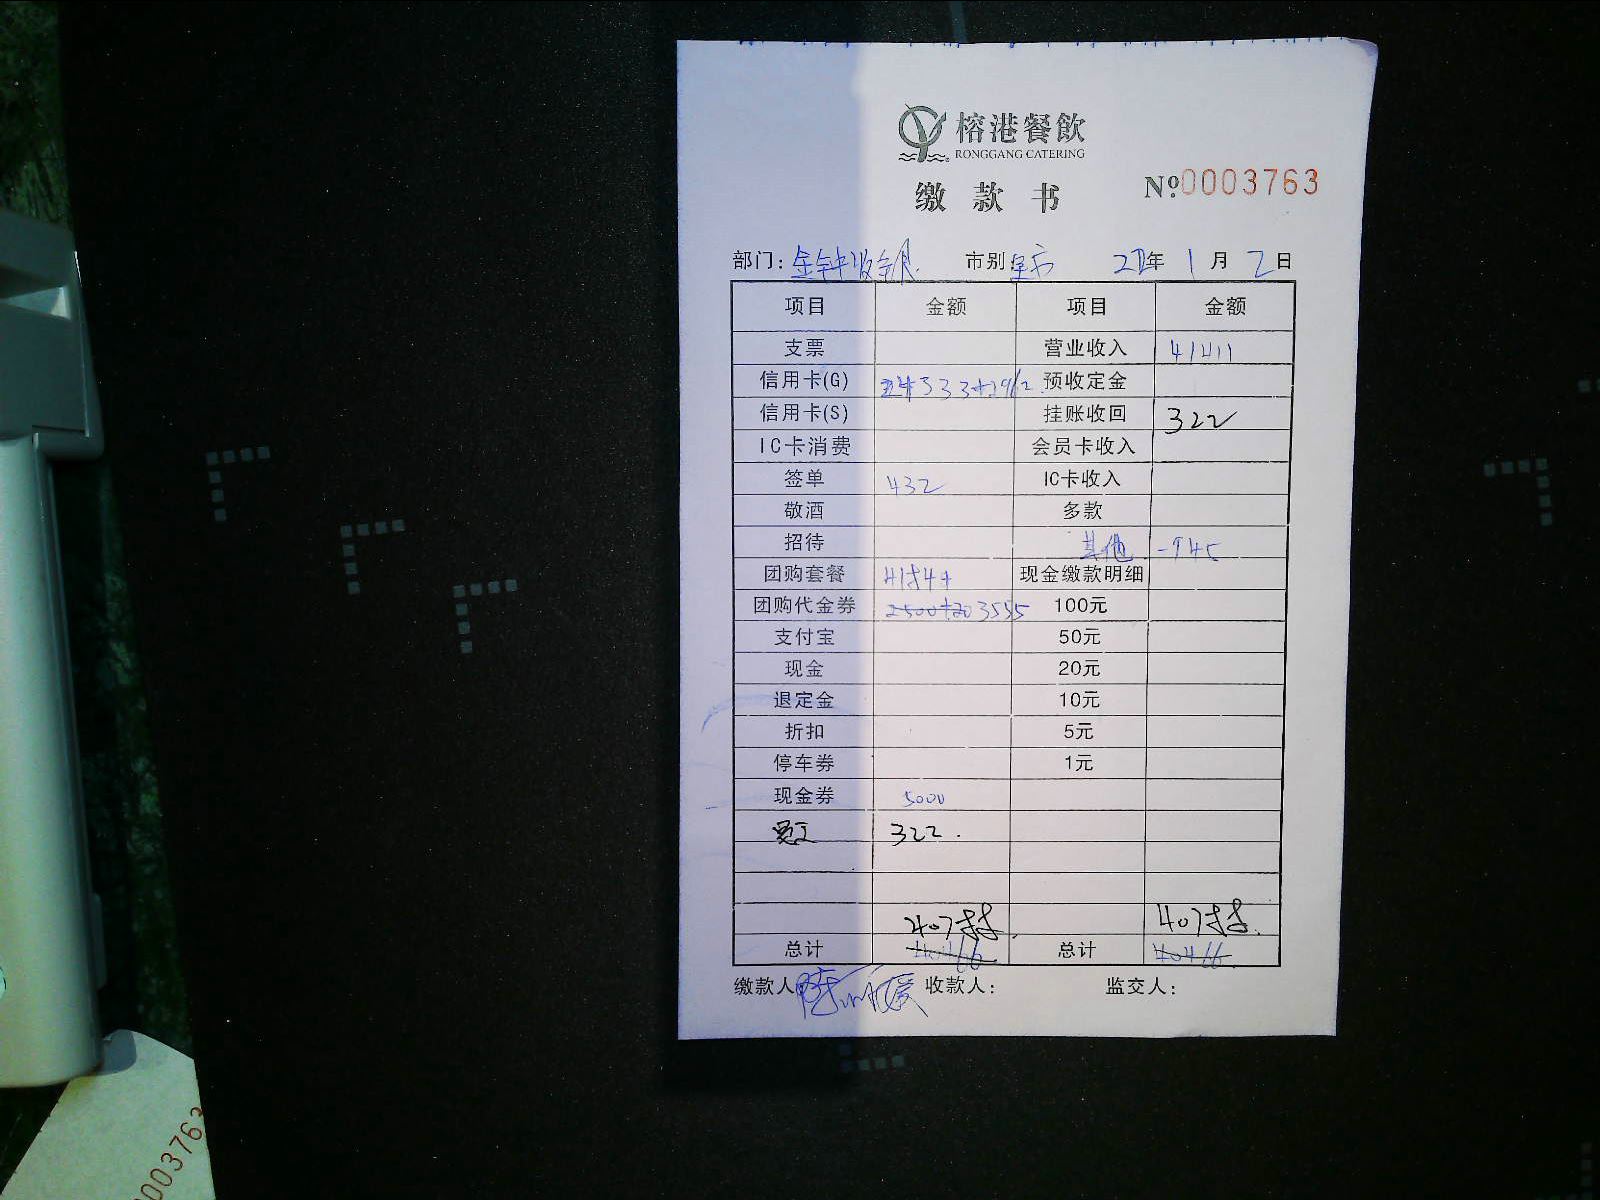 榕港餐飲
RONGGANG CATERING
缴款书
№0003763
部门: 金钟收银 市别: 年 1 月 2 日
项目 金额 项目 金额
支票 营业收入 41411
信用卡(G) 预收定金
信用卡(S) 挂账收回 322
IC卡消费 会员卡收入
签单 432 IC卡收入
敬酒 多款
招待 其他 -945
团购套餐 现金缴款明细
团购代金券 3555 100元
支付宝 50元
现金 20元
退定金 10元
折扣 5元
停车券 1元
现金券 5000
员工 322.
40788. 40788.
总计 40466 总计 40466.
缴款人 收款人: 监交人:
0003763